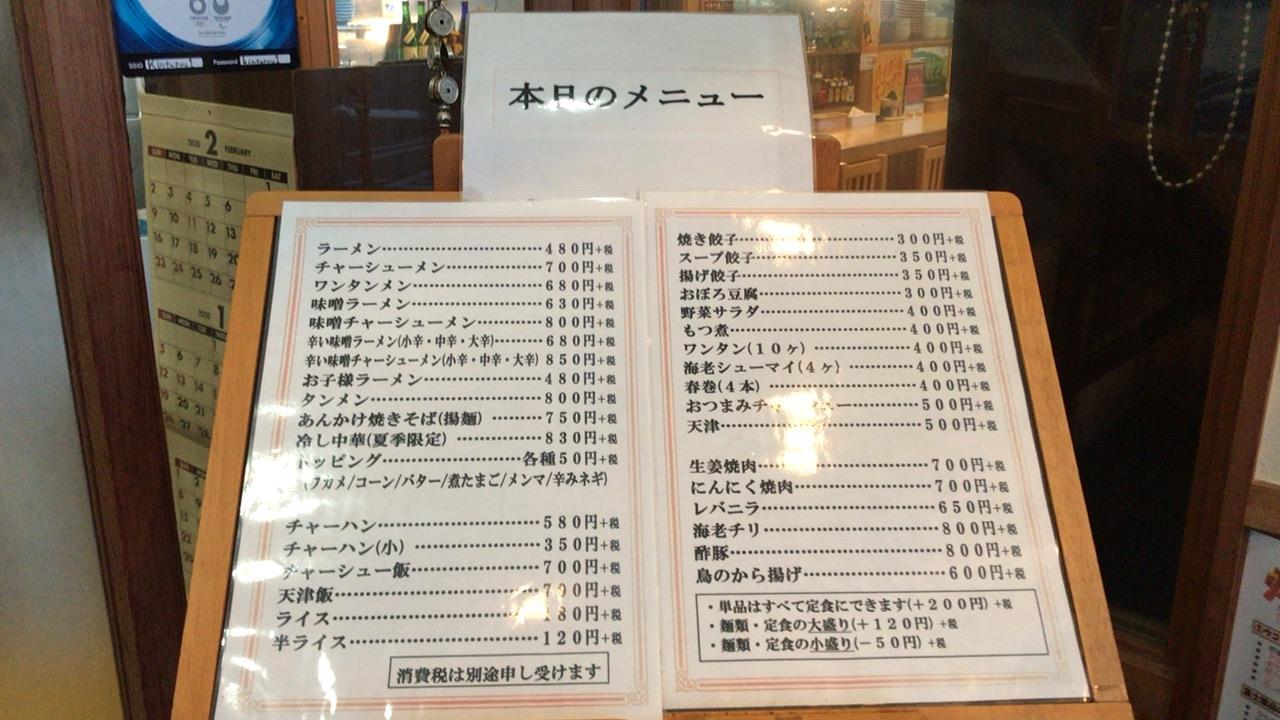 SSID Password
本日のメニュー
2020 2 FEBRUARY
SUN MON TUE WED THU FRI SAT
1
2 3 4 5 6
9 10 11 12 13
16 17 18 19 20
23 24 25 26
2020 1
5 6 7 8
12 13 14 15
ラーメン 480円+税
チャーシューメン 700円+税
ワンタンメン 680円+税
味噌ラーメン 630円+税
味噌チャーシューメン 800円+税
辛い味噌ラーメン(小辛・中辛・大辛) 680円+税
辛い味噌チャーシューメン(小辛・中辛・大辛) 850円+税
お子様ラーメン 480円+税
タンメン 800円+税
あんかけ焼きそば(揚麺) 750円+税
冷し中華(夏季限定) 830円+税
トッピング 各種50円+税
(ワカメ/コーン/バター/煮たまご/メンマ/辛みネギ)
チャーハン 580円+税
チャーハン(小) 350円+税
チャーシュー飯 700円+税
天津飯 700円+税
ライス 180円+税
半ライス 120円+税
消費税は別途申し受けます
焼き餃子 300円+税
スープ餃子 350円+税
揚げ餃子 350円+税
おぼろ豆腐 300円+税
野菜サラダ 400円+税
もつ煮 400円+税
ワンタン(10ヶ) 400円+税
海老シューマイ(4ヶ) 400円+税
春巻(4本) 400円+税
おつまみチャーシュー 500円+税
天津 500円+税
生姜焼肉 700円+税
にんにく焼肉 700円+税
レバニラ 650円+税
海老チリ 800円+税
酢豚 800円+税
鳥のから揚げ 600円+税
・単品はすべて定食にできます(+200円)+税
・麺類・定食の大盛り(+120円)+税
・麺類・定食の小盛り(-50円)+税